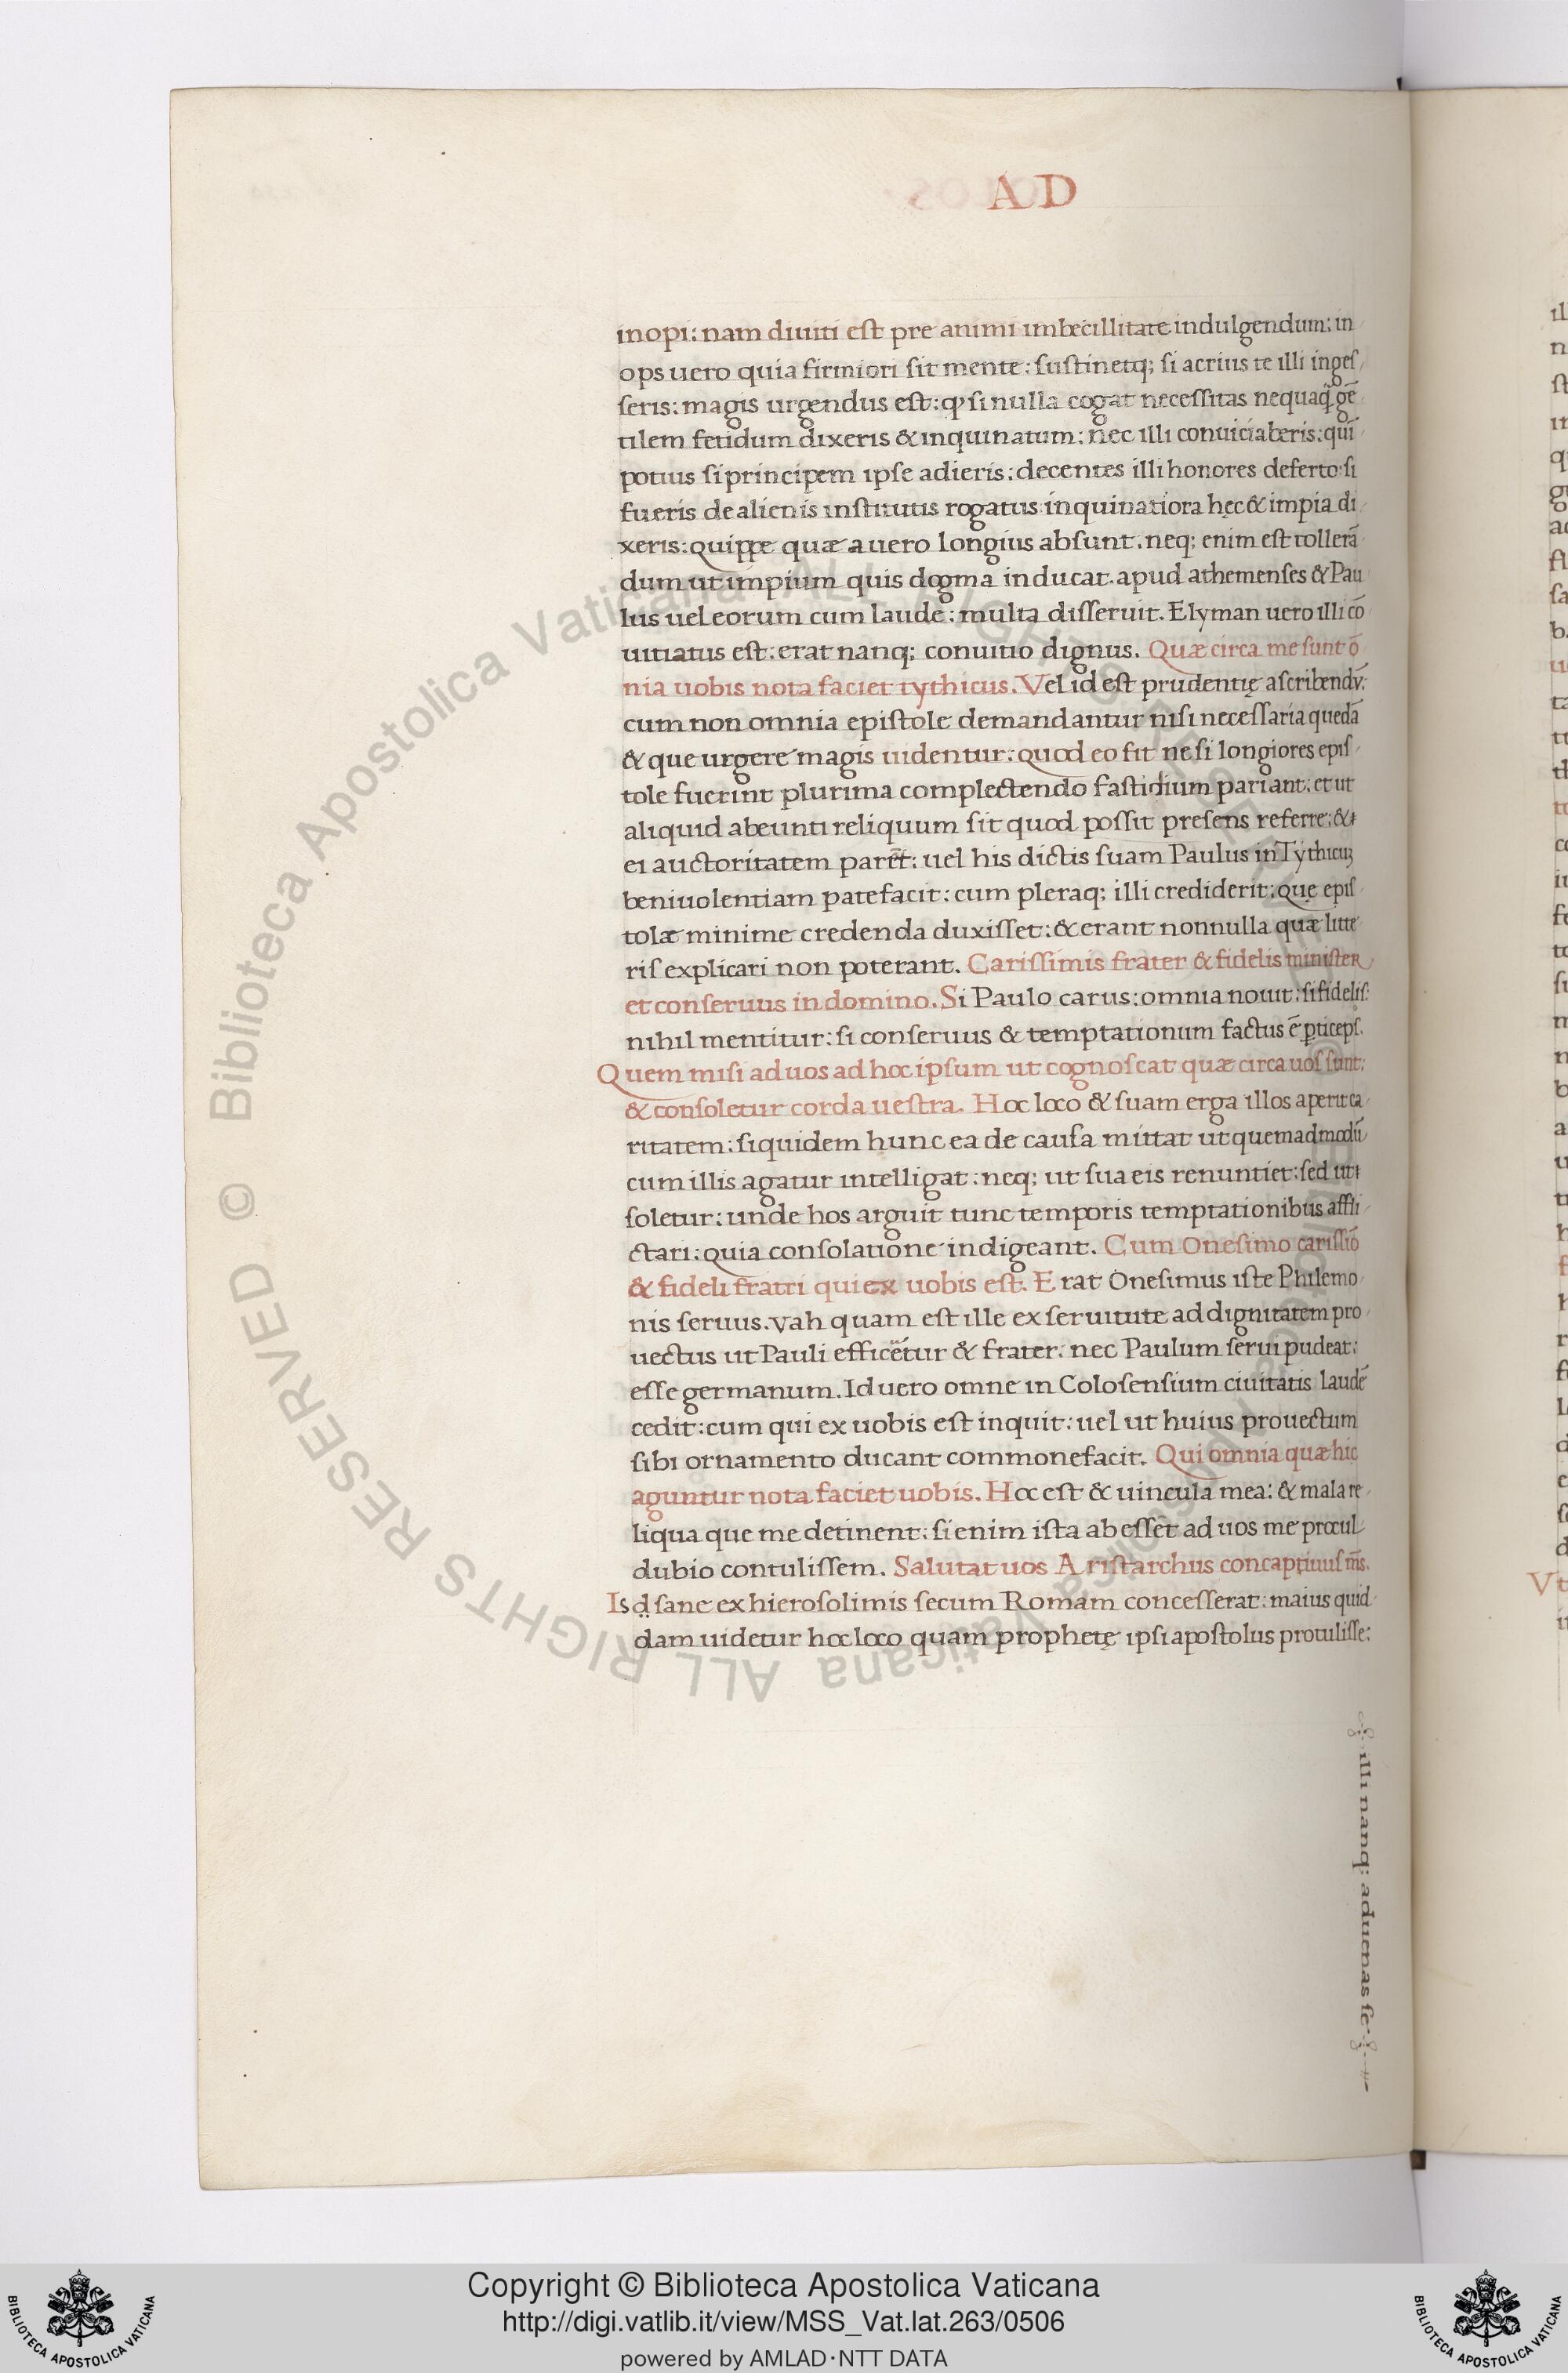 AD
inopi: nam diuiti est pre animi imbecillitate indulgendum: in
ops uero quia firmiori sit mente: sustinetq; si acrius te illi inges
seris: magis urgendus est: ꝙ si nulla cogat necessitas nequaq̃ gē
tilem fetidum dixeris & inquinatum: nec illi conuiciaberis: qui
potius si principem ipse adieris: decentes illi honores deferto: si
fueris de alienis institutis rogatus: inquinatiora hęc & impia di
xeris: quippe quæ a uero longius absunt. neq; enim est tollerā
dum ut impium quis dogma inducat. apud athemenses & Pau
lus uel eorum cum laude: multa disseruit. Elyman uero illi cō
uitiatus est: erat nanq; conuitio dignus. Quæ circa me sunt ō
nia uobis nota faciet tythicus. Vel id est prudentię ascribendv:
cum non omnia epistole demandantur nisi necessaria quedā
& que urgere magis uidentur: quod eo fit ne si longiores epis
tole fuerint plurima complectendo fastidium pariant: et ut
aliquid abeunti reliquum sit quod possit presens referre: &
ei auctoritatem paret: uel his dictis suam Paulus in Tythicuȝ
beniuolentiam patefacit: cum pleraq; illi crediderit: quę epis
tolæ minime credenda duxisset: & erant nonnulla quæ litte
ris explicari non poterant. Carissimis frater & fidelis minister
et conseruus in domino. Si Paulo carus: omnia nouit: si fidelis:
nihil mentitur: si conseruus & temptationum factus ē ꝑticeps.
Quem misi ad uos ad hoc ipsum ut cognoscat quæ circa uos sunt:
& consoletur corda uestra. Hoc loco & suam erga illos aperit ca
ritatem: siquidem hunc ea de causa mittat ut quemadmodū
cum illis agatur intelligat: neq; ut sua eis renuntiet: sed ut
soletur: unde hos arguit tunc temporis temptationibus affli
ctari: quia consolatione indigeant. Cum Onesimo carissīo
& fideli fratri qui ex uobis est. Erat Onesimus iste Philemo
nis seruus. vah quam est ille ex seruitute ad dignitatem pro
uectus ut Pauli efficetur & frater: nec Paulum serui pudeat:
esse germanum. Id uero omne in Colosensium ciuitatis laudē
cedit: cum qui ex uobis est inquit: uel ut huius prouectum
sibi ornamento ducant commonefacit. Qui omnia quæ hic
aguntur nota faciet uobis. Hoc est & uincula mea: & mala re
liqua que me detinent: si enim ista abesset ad uos me procul
dubio contulissem. Salutat uos Aristarchus concaptiuus m̄s.
Is sane ex hierosolimis secum Romam concesserat: maius quid
dam uidetur hoc loco quam prophetę ipsi apostolus protulisse:
illi nanq; aduenas se